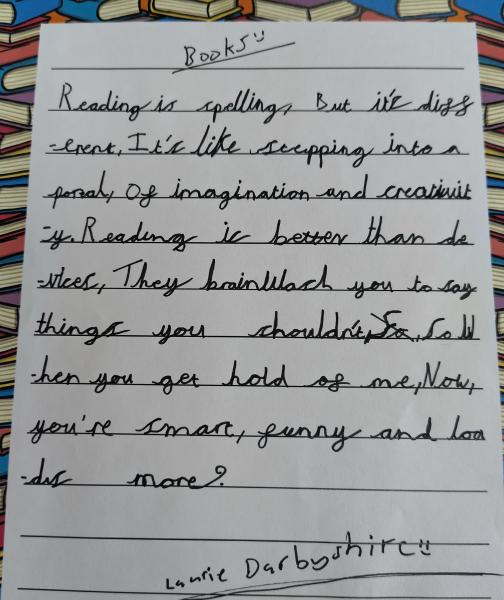 Books
Reading is spelling, But it's diff
-erent, It's like stepping into a
portal, Of imagination and creativit
-y. Reading is better than de
-vices, They brainWash you to say
things you shouldn't, So, So W
-hen you get hold of me, Now,
you're smart, funny and loa
-ds more?
Laurie Darbyshire